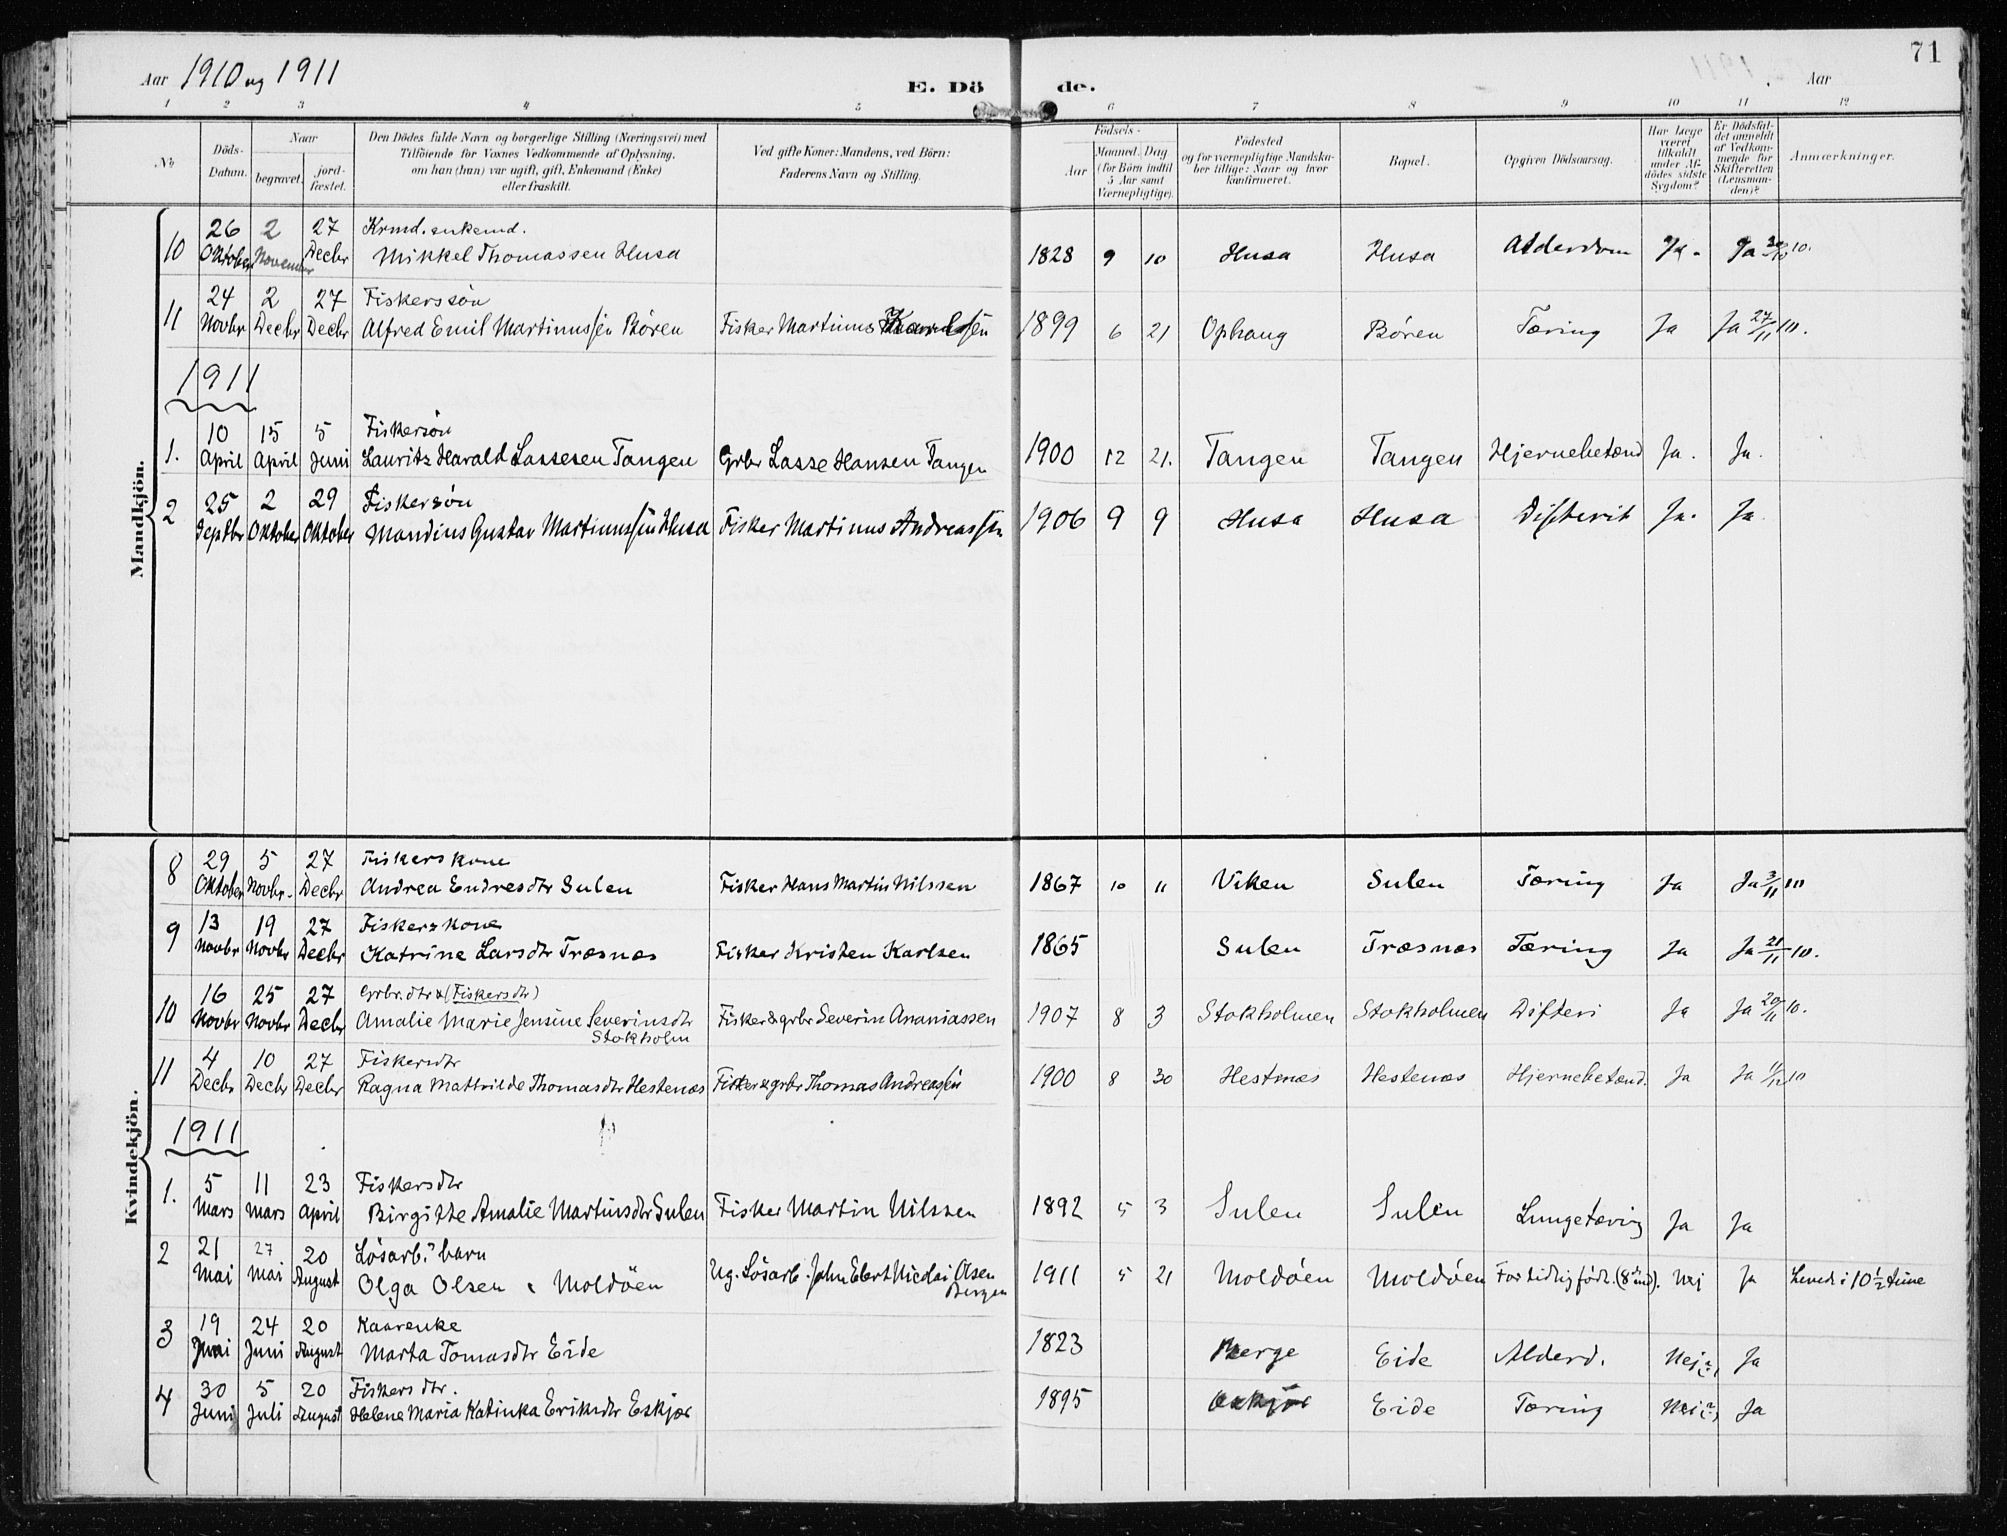 71
Aar 1910 og 1911
E. Dö de.
Aar
1 2 3 4 5 6 7 8 9 10 11 12
No
Döds-Datum.
Naar
begravet.
jord-fæstet.
Den Dödes fulde Navn og borgerlige Stilling (Næringsvei) med
Tilföiende for Voxnes Vedkommende af Oplysning.
om han (hun) var ugift, gift, Enkemand (Enke)
eller fraskilt.
Ved gifte Koner: Mandens, ved Börn:
Faderens Navn og Stilling.
Födsels-
Aar
Maaned. Dag
(for Börn indtil 5 Aar samt Værnepligtige).
Födested
og for værnepligtige Mandskaber tillige: Naar og hvor konfirmeret.
Bopæl.
Opgiven Dödsaarsag.
Har Læge været tilkaldt under Afdödes sidste Sygdom?
Er Dödsfaldet anmeldt af Vedkommende for Skifteretten (Lensmanden)?
Anmærkninger.
Mandkjön.
26 2 27 Krmd. enkemd.
10 Oktober November Decbr Mikkel Thomassen Husa 1828 9 10 Husa Husa Alderdom Ja. Ja 10.
24 2 27 Fiskerssön
11 Novbr Decbr Decbr Alfred Emil Martinussen Bören Fisker Martinus 1899 6 21 Ophaug Bören Tæring Ja Ja 27/11 10.
1911
10 15 5 Fiskersön
1. April April Juni Lauritz Harald Lassesen Tangen Grbr Lasse Hansen Tangen 1900 12 21. Tangen Tangen Hjernebetænd Ja. Ja.
25 2 29 Fiskersön
2 Septbr Oktober Oktober Mandius Gustav Martinussen Husa Fisker Martinus Andreassen 1906 9 9 Husa Husa Difterit Ja. Ja.
Kvindekjön.
29 5 27 Fiskerskone
8 Oktober Novbr. Decbr Andrea Endresdtr Sulen Fisker Hans Martin Nilssen 1867 10 11 Viken Sulen Tæring Ja Ja 3/11 10
13 19 27 Fiskerskone
9 Novbr Novbr Decbr Katrine Larsdtr Træsnæs Fisker Kristen Karlsen 1865 Sulen Træsnæs Tæring Ja Ja 21/11 10.
16 25 27 Grbr. dtr & (Fiskersdtr)
10 Novbr Novbr Decbr Amalie Marie Jensine Severinsdtr Fisker & grbr Severin Ananiassen 1907 8 3 Stokholmen Stokholmen Difteri Ja Ja 20/11 10.
Stokholm
4 10 27 Fiskersdtr
11 Decbr Decbr Decbr Ragna Mathilde Thomasdtr Hestenæs Fisker & grbr Thomas Andreassen 1900 8 30 Hestnæs Hestenæs Hjernebetænd. Ja Ja 10
1911
5 11 23 Fiskersdtr
1. Mars Mars April Birgitte Amalie Martinsdtr Sulen Fisker Martin Nilssen 1892 5 3 Sulen Sulen Lungetæring Ja Ja
21 27 20 Lösarb.s barn
2 Mai Mai August Olga Olsen Moldöen Ug. Lösarb. John Ebert Nicolai Olsen Bergen 1911 5 21 Moldöen Moldöen For tidlig födt. (8 md). Nej Ja Levede i 10 1/2 time
19 24 20 Kaarenke
3 Juni August Marta Tomasdtr Eide 1823 Berge Eide Alderd. Nej Ja
30 5 20 Fiskersdtr.
4 Juni Juli August Helene Maria Katinka Eriksdtr Eskjær 1895 Eide Tæring Nei Ja